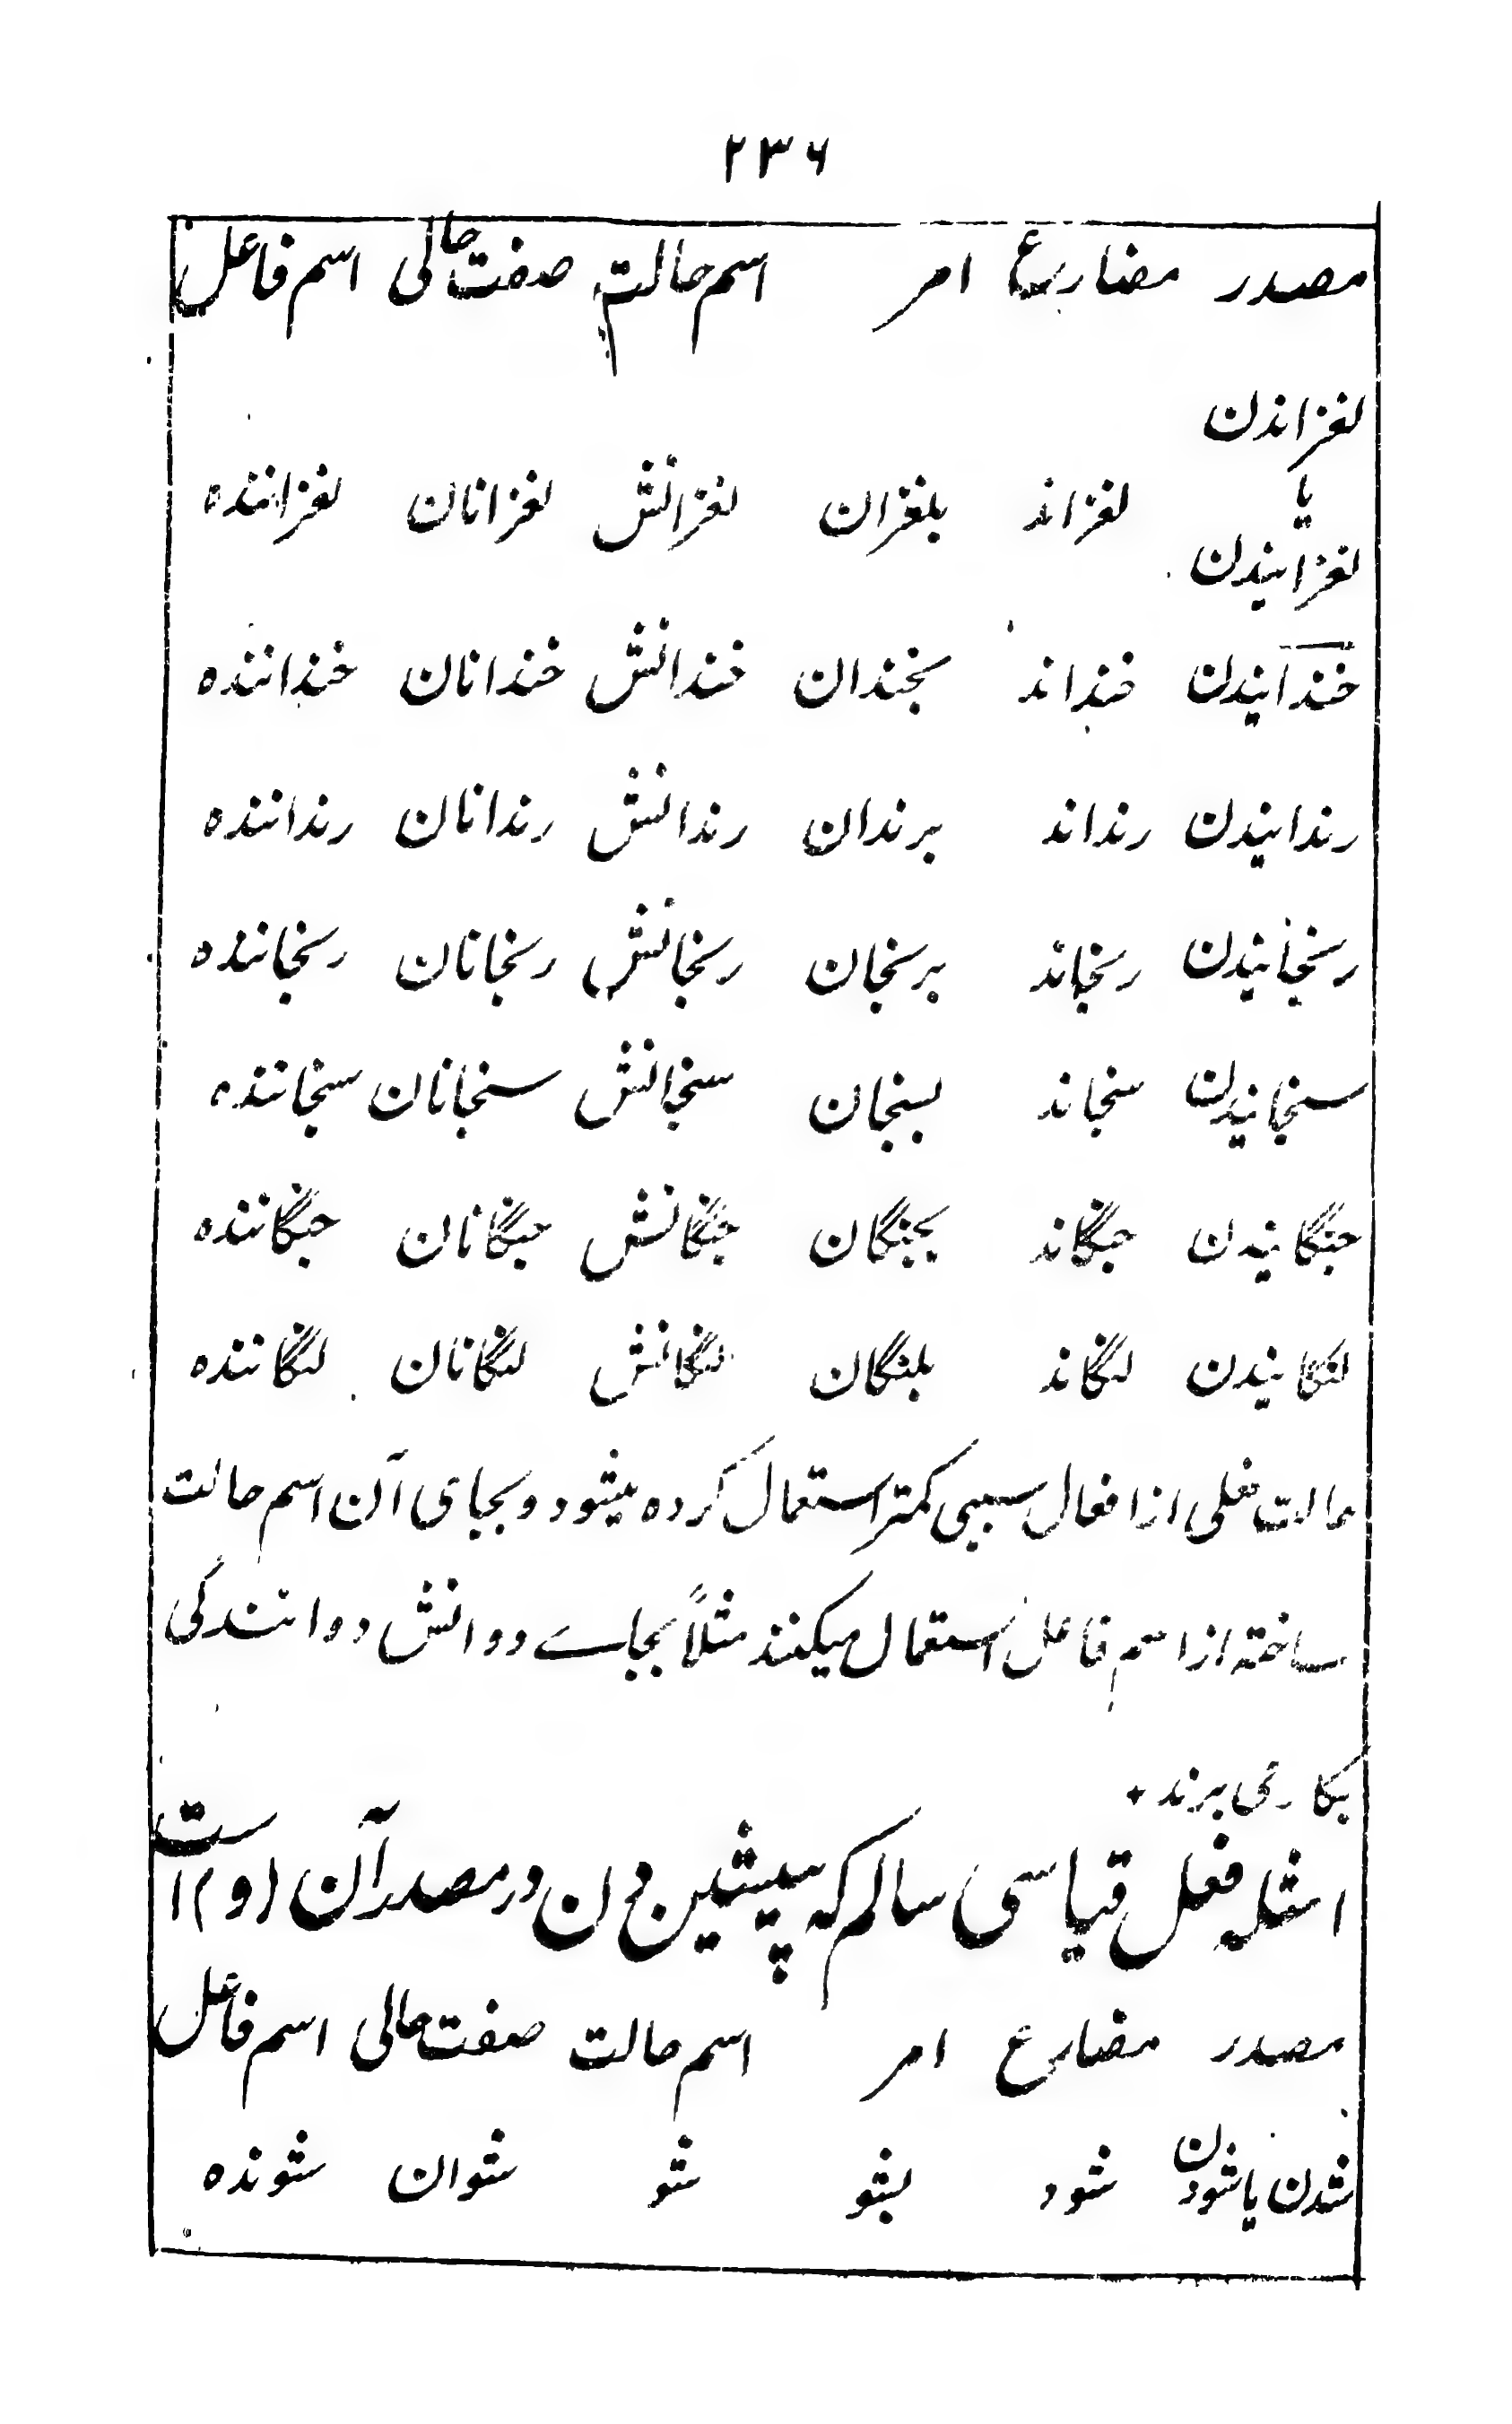 ۲۳۶
مصدر مضارع امر اسم حالت صفت حالی اسم فاعل
لغزاندن
یا
لغزاند بلغزان لغزانش لغزانان لغزاننده
لغزانیدن
خندانیدن خنداند بخندان خندانش خندانان خنداننده
رندانیدن رنداند برندان رندانش رندانان رنداننده
رنجانیدن رنجاند برنجان رنجانش رنجانان رنجاننده
سنجانیدن سنجاند بسنجان سنجانش سنجانان سنجاننده
جنگانیدن جنگاند بجنگان جنگانش جنگانان جنگاننده
لنگانیدن لنگاند بلنگان لنگانش لنگانان لنگاننده
حالت فعلی از افعال سببی کمتر استعمال کرده میشود و بجای آن اسم حالت
ساخته از اسم فاعل استعمال میکنند مثلاً بجاے دوانش دوانندگی
بکار می برند
امثلہ فعل قیاسی سالم کہ پیشین دن در مصدر آن (وم) است
مصدر مضارع امر اسم حالت صفت حالی اسم فاعل
شدن یا شودن شود بشو شو شوان شونده